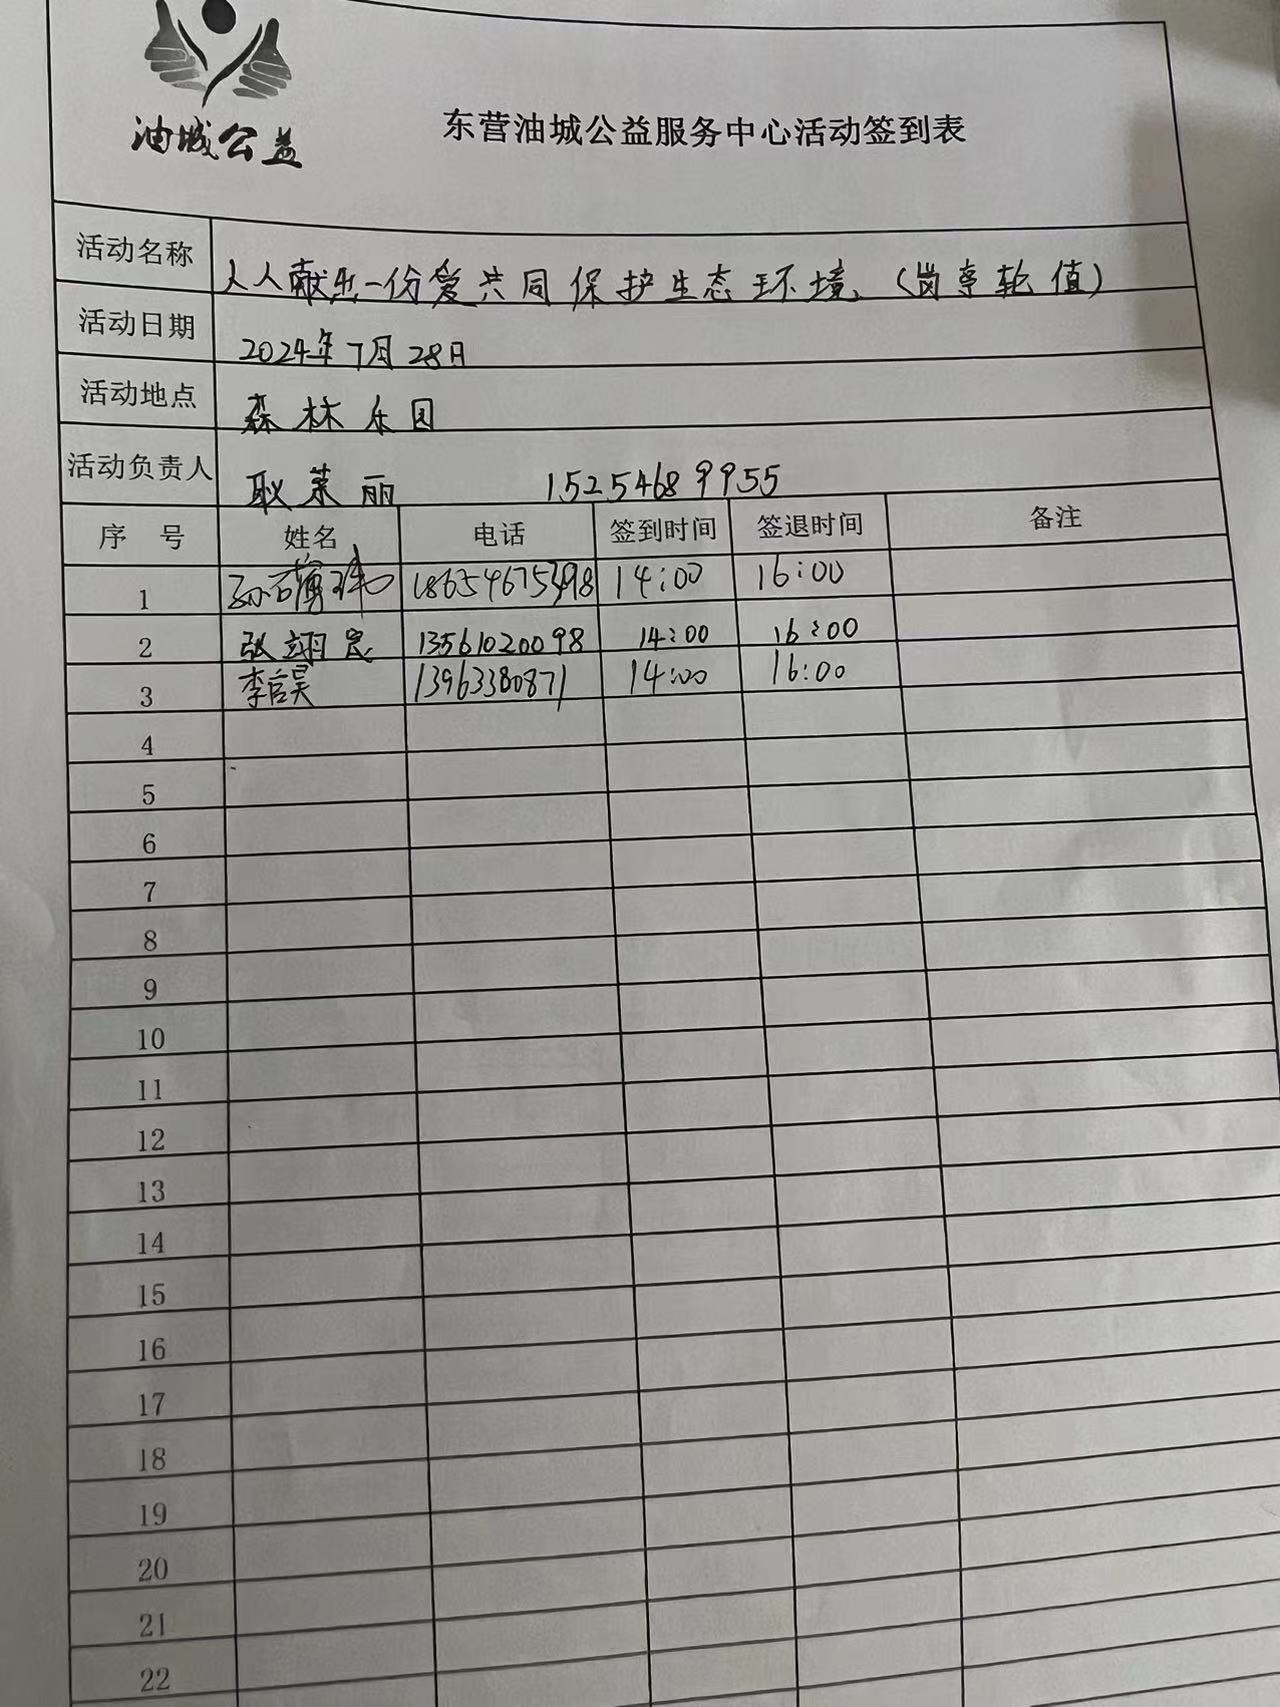 油城公益
东营油城公益服务中心活动签到表
活动名称 人人献出一份爱共同保护生态环境(岗亭轮值)
活动日期 2024年7月28日
活动地点 森林乐园
活动负责人 耿莱丽 15254689955
序 号 姓名 电话 签到时间 签退时间 备注
1 14:00 16:00
2 张翊宸 13561020098 14:00 16:00
3 李官昊 13963380871 14:00 16:00
4
5
6
7
8
9
10
11
12
13
14
15
16
17
18
19
20
21
22